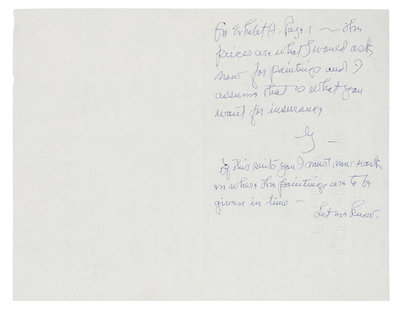 On Exhibit A. Page 1 — the
prices are what I would ask
now for paintings and I
assume that is what you
want for insurance
If this suits you I must now work
on where the paintings are to be
given in time —
Let me know.